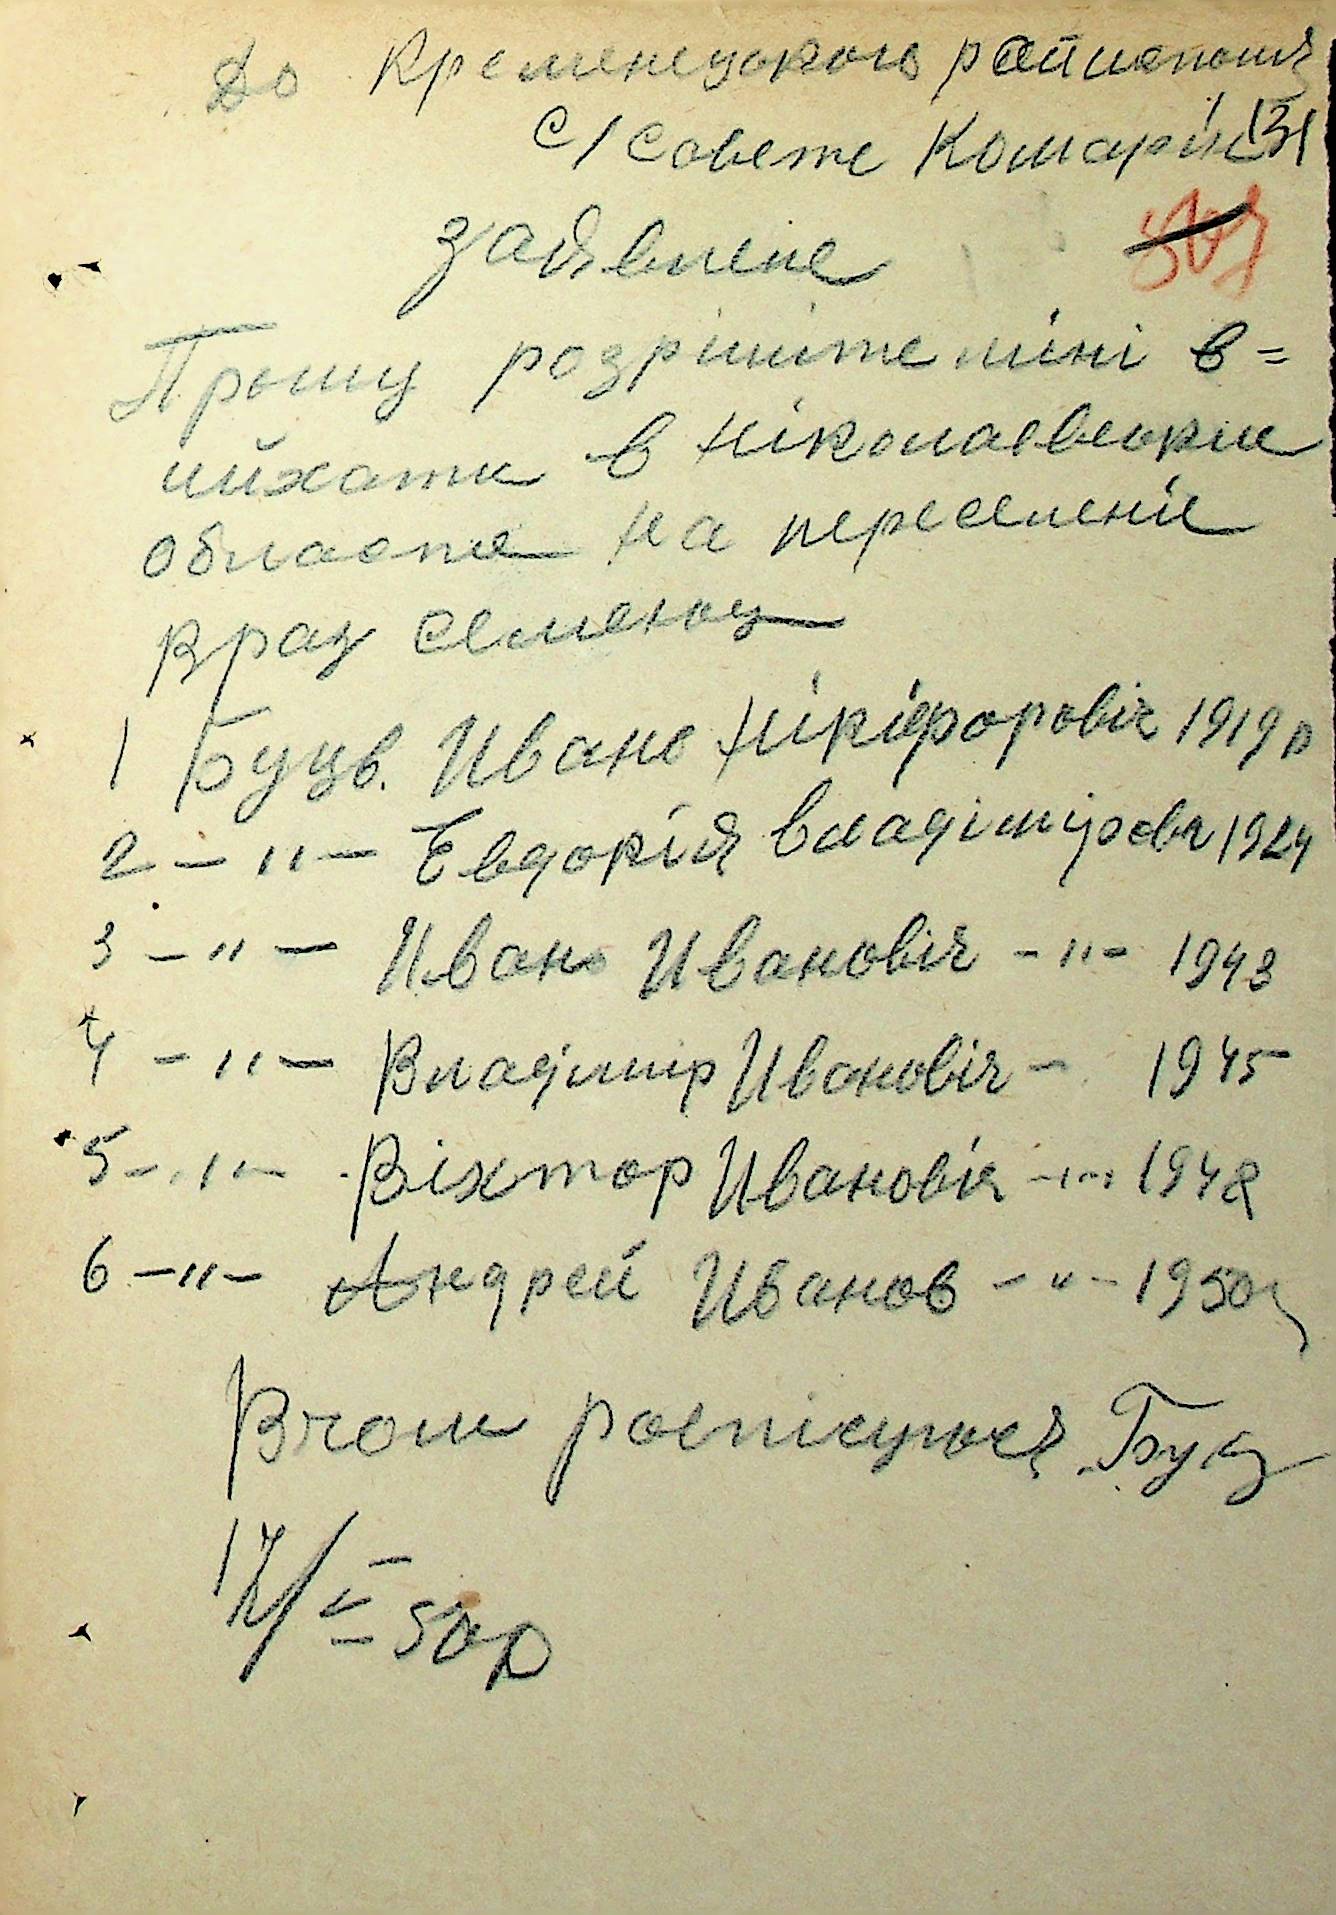 До Кременецького райисполк
с/Совете Комарін
131
заявлене
Прошу розрішіте міні в=
ийхати в Ніколаевское
области на переселеніе
враз семеюу
1 Буцв. Ивано Нікіфоровіч 1919 р
2 — " — Евдокія Владіміровн 1924
3 — " — Ивано Ивановіч — " — 1943
4 — " — Владімір Ивановіч — 1945
5 — " — Віхтор Ивановіч — " — 1948
6 — " — Андрей Иванов — " — 1950
Вчом роспісуюся Буц
17/V 50 р